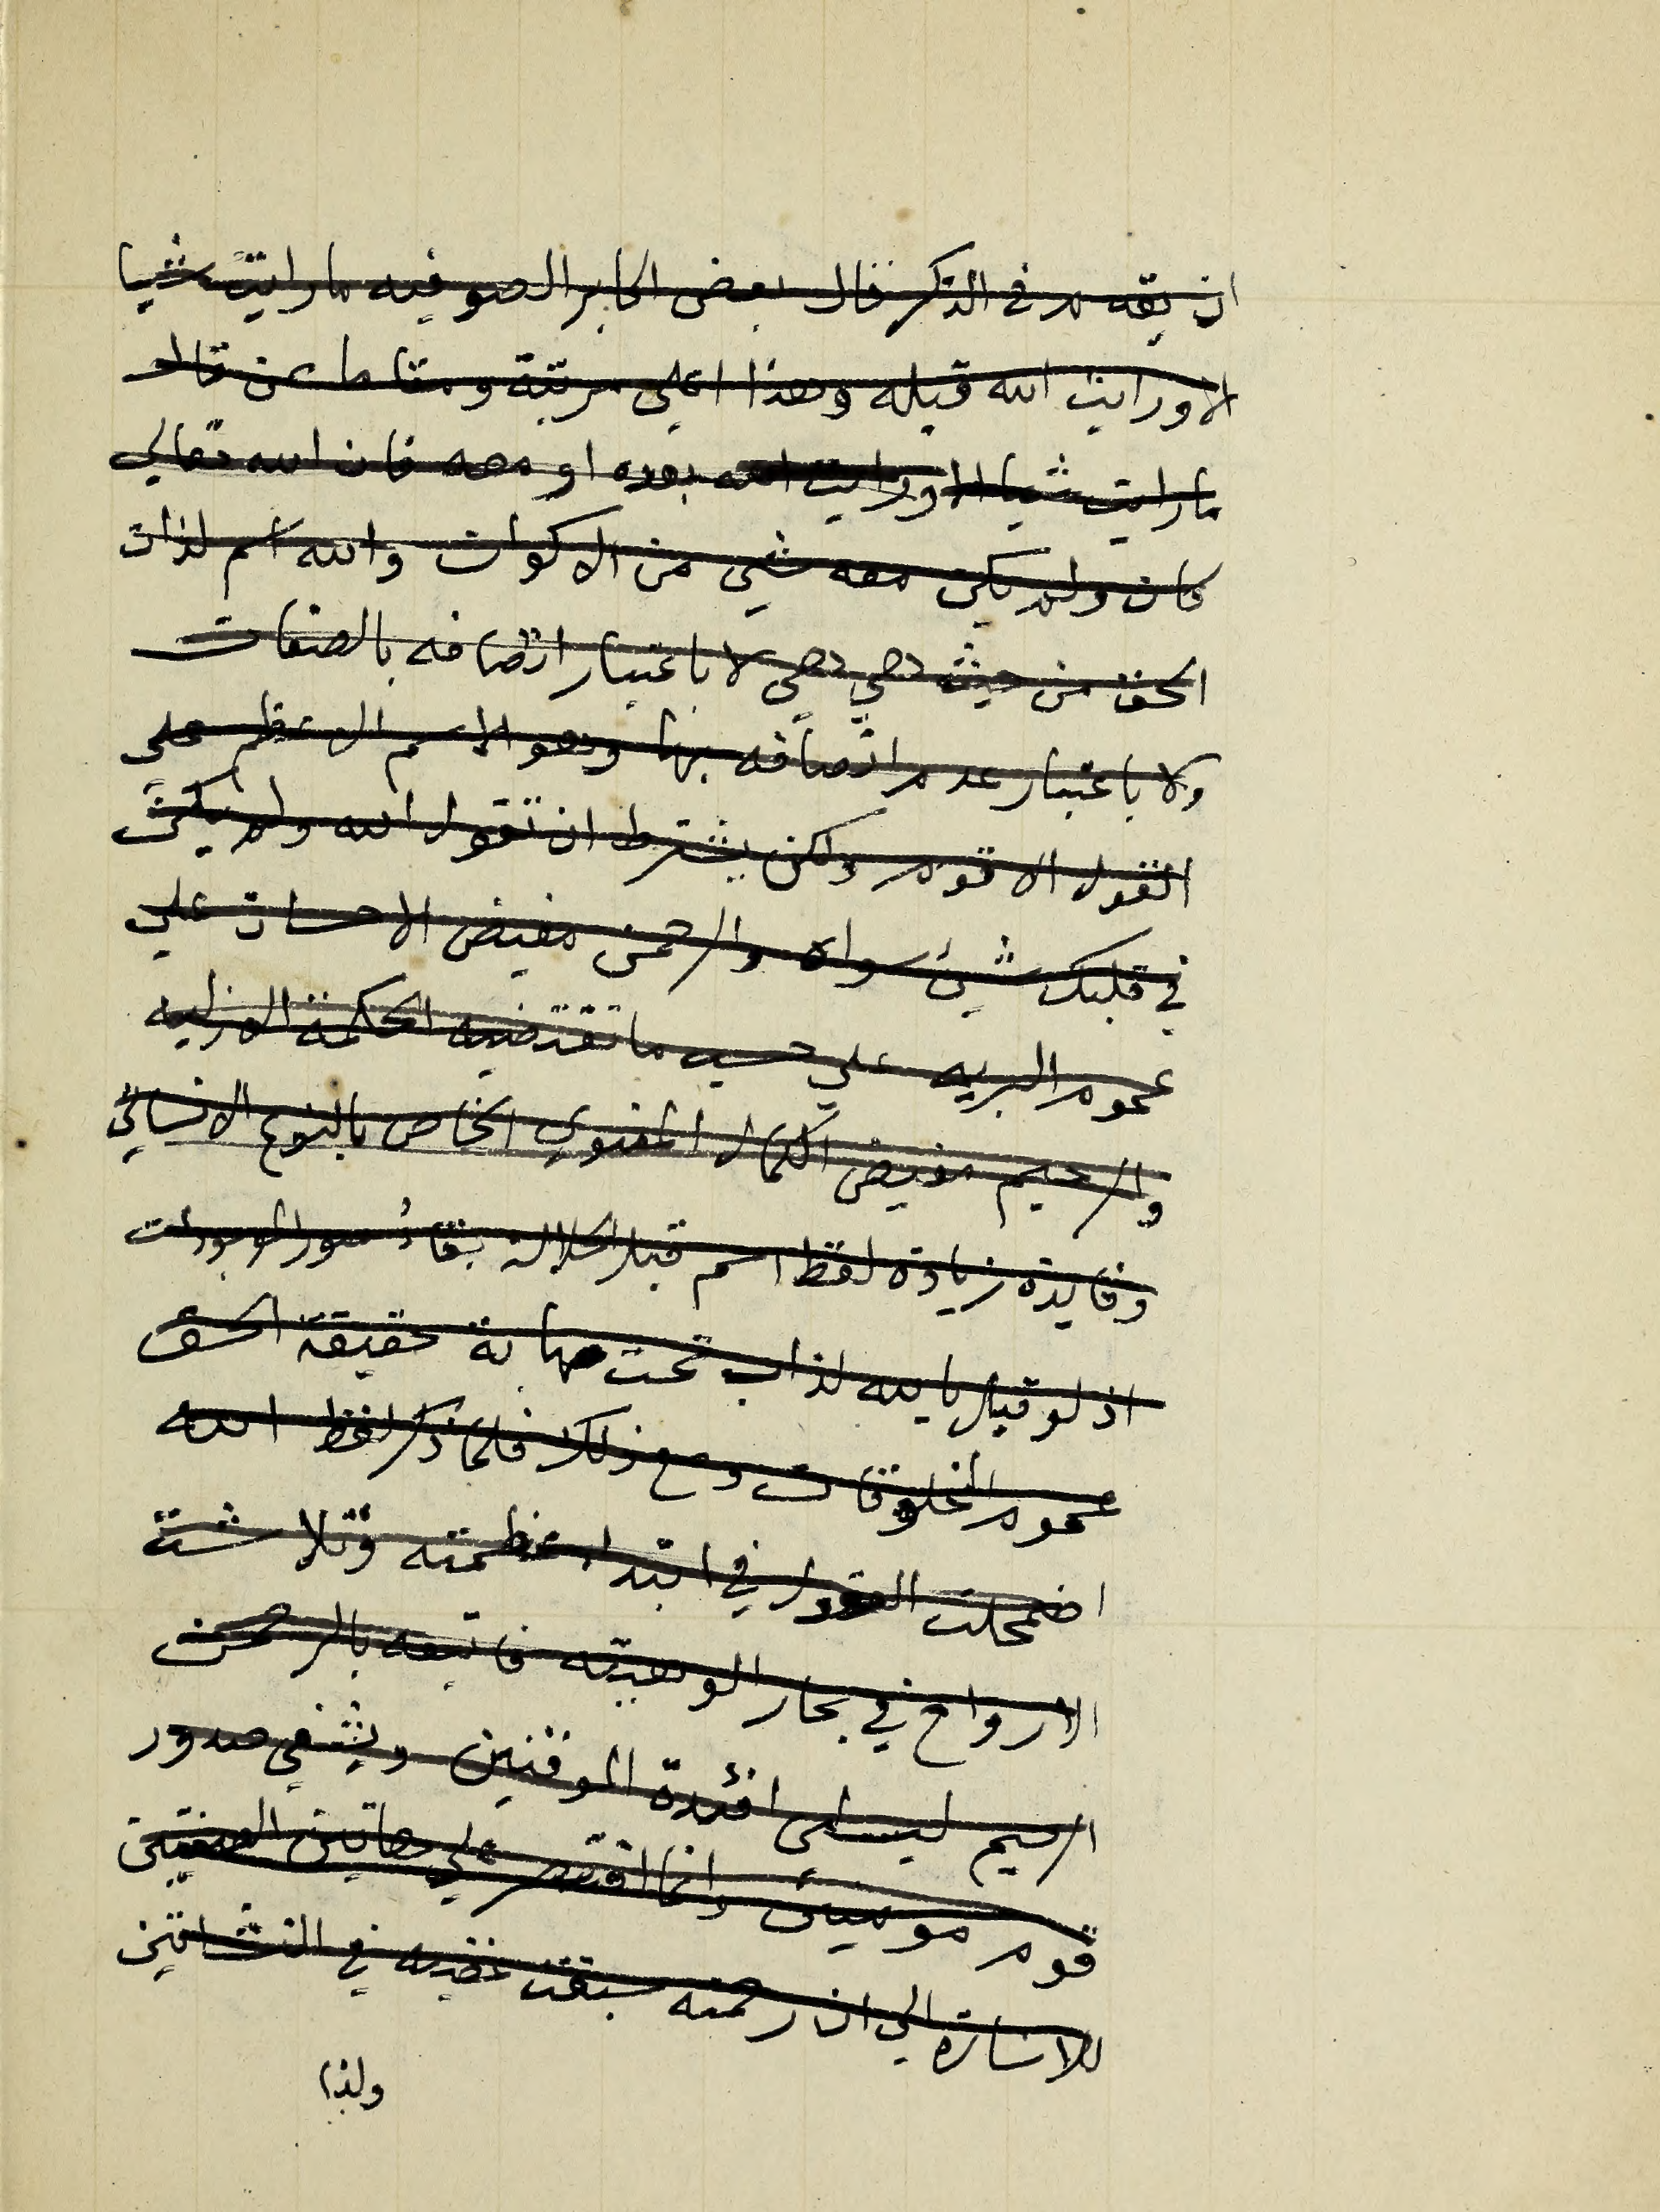 ان يقدم في الذكر قال بعض اكابر الصوفيه ما رايت شيا
الا ورايت الله قبله وهذا اعلي مرتبة ومقاما عن قال
ما رايت شيا الا ورايت الله بعده او معه فان الله تعالي
كان ولم يكن معه شي من الاكوان والله اسم لذات
الحق من حيث هي هي لا باعتبار اتصافه بالصفات
ولا باعتبار عدم اتصافه بها وهو الاسم الاعظم علي
القول الاقوم ولكن بشرط ان تقول الله ولم يكن
في قلبك شيئ سواه والرحمن مفيض الاحسان علي
عموم البريه علي حسب ما تقتضيه الحكمة الازليه
والرحيم مفيض الكمال المعنوي الخاص بالنوع الانساني
وفايدة زيادة لفظ اسم قبل الجلالة بقاء صور الموجودات
اذ لو قيل بالله لذاب تحت مهابة حقيقة الحق
عموم المخلوقات ومع ذلك فلما ذكر لفظ الله
اضمحلت العقول في ابتداء عظمته وتلاشت
الارواح في بحار الوهيته فاتبعه بالرحمن
الرحيم ليسلى افئدة الموقنين ويشفي صدور
قوم مومنين وانما اقتصر علي هاتين الصفتين
للاشارة الي ان رحمته سبقت غضبه في النشاتين
ولذا